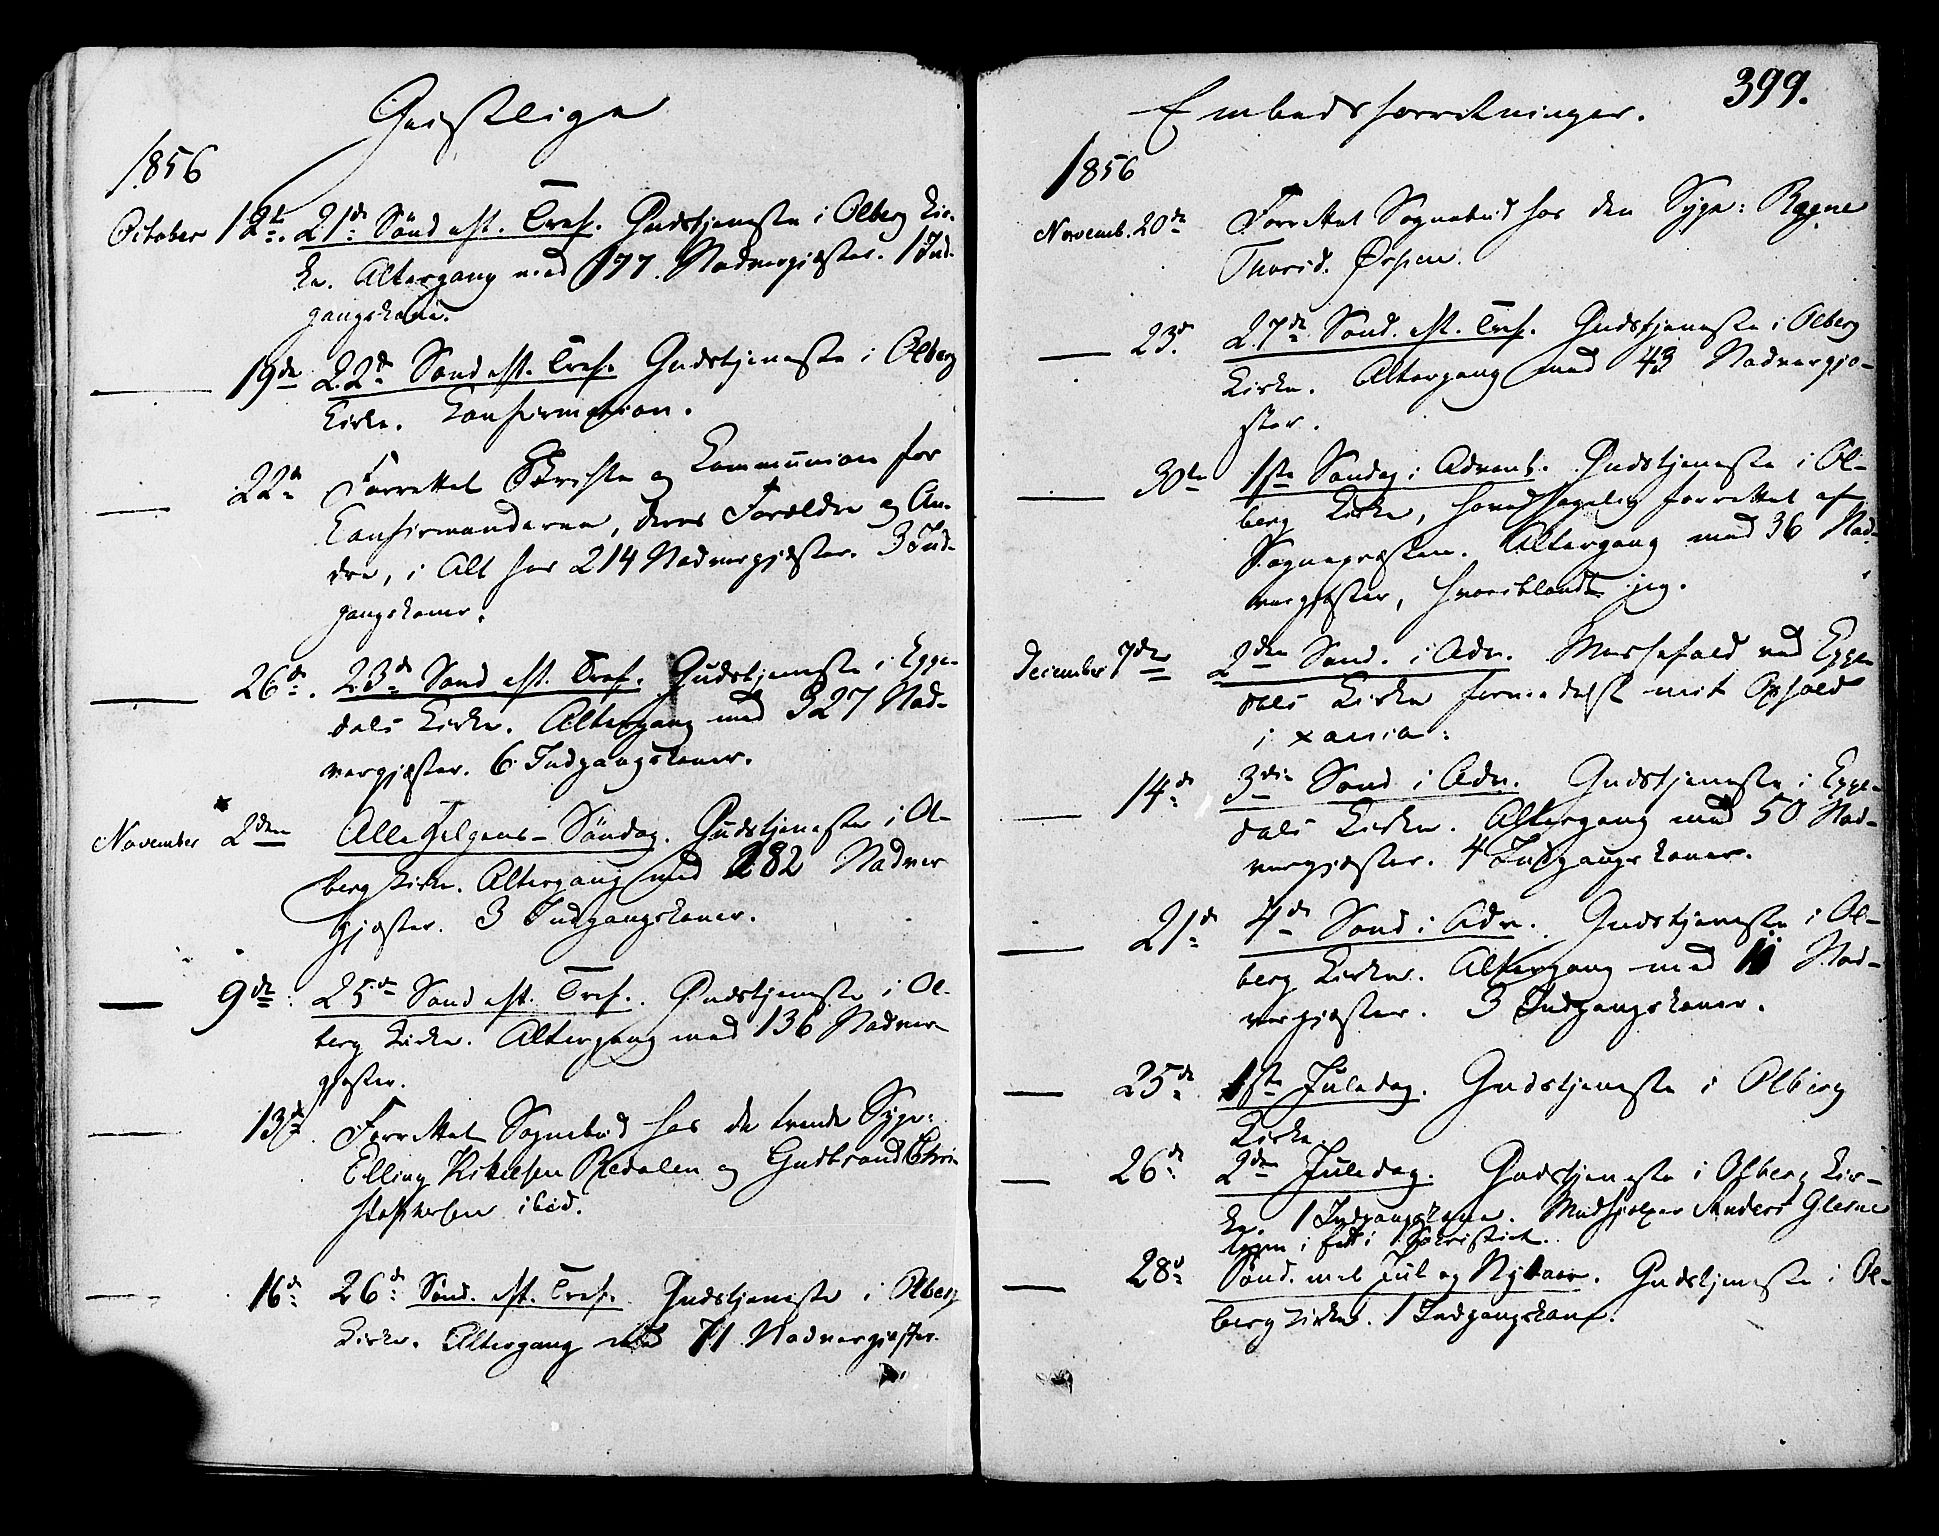 Geistlige
1856
October 12te. 21de Sønd. eft. Tref. Gudstjeneste i Olberg Kir-
ke. Altergang med 177 Nadvergjæster. 1 Ind-
gangskone.
— 19de 22de Sønd eft. Tref. Gudstjeneste i Olberg
Kirke. Confirmation.
— 22de Forrettet Skrifte og Communion for
Confirmanderne, deres Forældre og An-
dre, i Alt for 214 Nadvergjæster. 3 Ind-
gangskoner.
— 26de. 23de Sønd eft. Tref. Gudstjeneste i Egge-
dals Kirke. Altergang med 327 Nad-
vergjæster. 6 Indgangskoner.
November 2den Alle Helgens-Søndag. Gudstjeneste i Ol-
berg Kirke. Altergang med 282 Nadver
gjæster. 3 Indgangskoner.
— 9de: 25de Sønd eft. Tref. Gudstjeneste i Ol-
berg Kirke. Altergang med 136 Nadver
gjæster.
— 13de. Forrettet Sognebud hos de tvende Syge:
Elling Kittelsen Redalen og Gudbrand Chri-
stophersen ibid.
— 16de 26de Sønd. eft. Tref. Gudstjeneste i Olberg
Kirke. Altergang med 71 Nadvergjæster.
Embedsforretninger. 399.
1856
Novemb. 20de Forrettet Sognebud hos den Syge:
Thorid. Ørpen.
— 23de. 27de Sønd. eft. Tref. Gudstjeneste i Olberg
Kirke. Altergang med 43 Nadvergjæ-
ster.
— 30te 1ste Søndag i Advent. Gudstjeneste i Ol-
berg Kirke, hovedsagelig forrettet af
Sognepræsten. Altergang med 36 Nad-
vergjæster, hvoriblandt jeg.
December 7de 2den Sønd. i Adv. Messefald ved Egge-
dals Kirke formedelst mit Ophold
i Xania.
— 14de 3die Sønd i Adv. Gudstjeneste i Egge-
dals Kirke. Altergang med 50 Nad-
vergjæster. 4 Indgangskoner.
— 21de 4de Sønd i Adv. Gudstjeneste i Ol-
berg Kirke. Altergang med 11 Nad-
vergjæster. 3 Indgangskoner.
— 25de 1ste Juledag. Gudstjeneste i Olberg
Kirke.
— 26de 2den Juledag. Gudstjeneste i Olberg Kir-
ke. 1 Indgangskone. Medhjelper Anders Glesne
i Sakristiet.
— 28de Sønd. mel. Jul og Nytaar. Gudstjeneste i Ol-
berg Kirke. 1 Indgangskone.